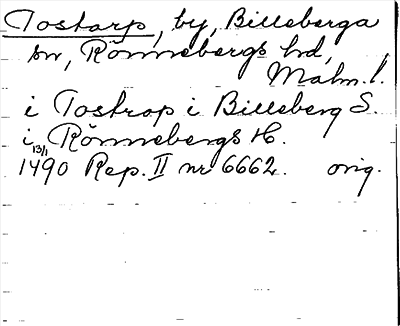 Tostarp, by, Billeberga
sn, Rönnebergs hd,
Malm. l.
i Tostrop i Billeberg S.
i Rönnebergs H.
13/1
1490 Rep. II nr 6662. orig.